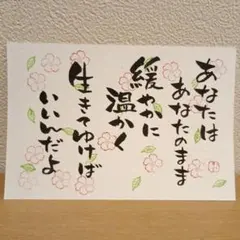 あなたは
あなたのまま
緩やかに
温かく
生きてゆけば
いいんだよ